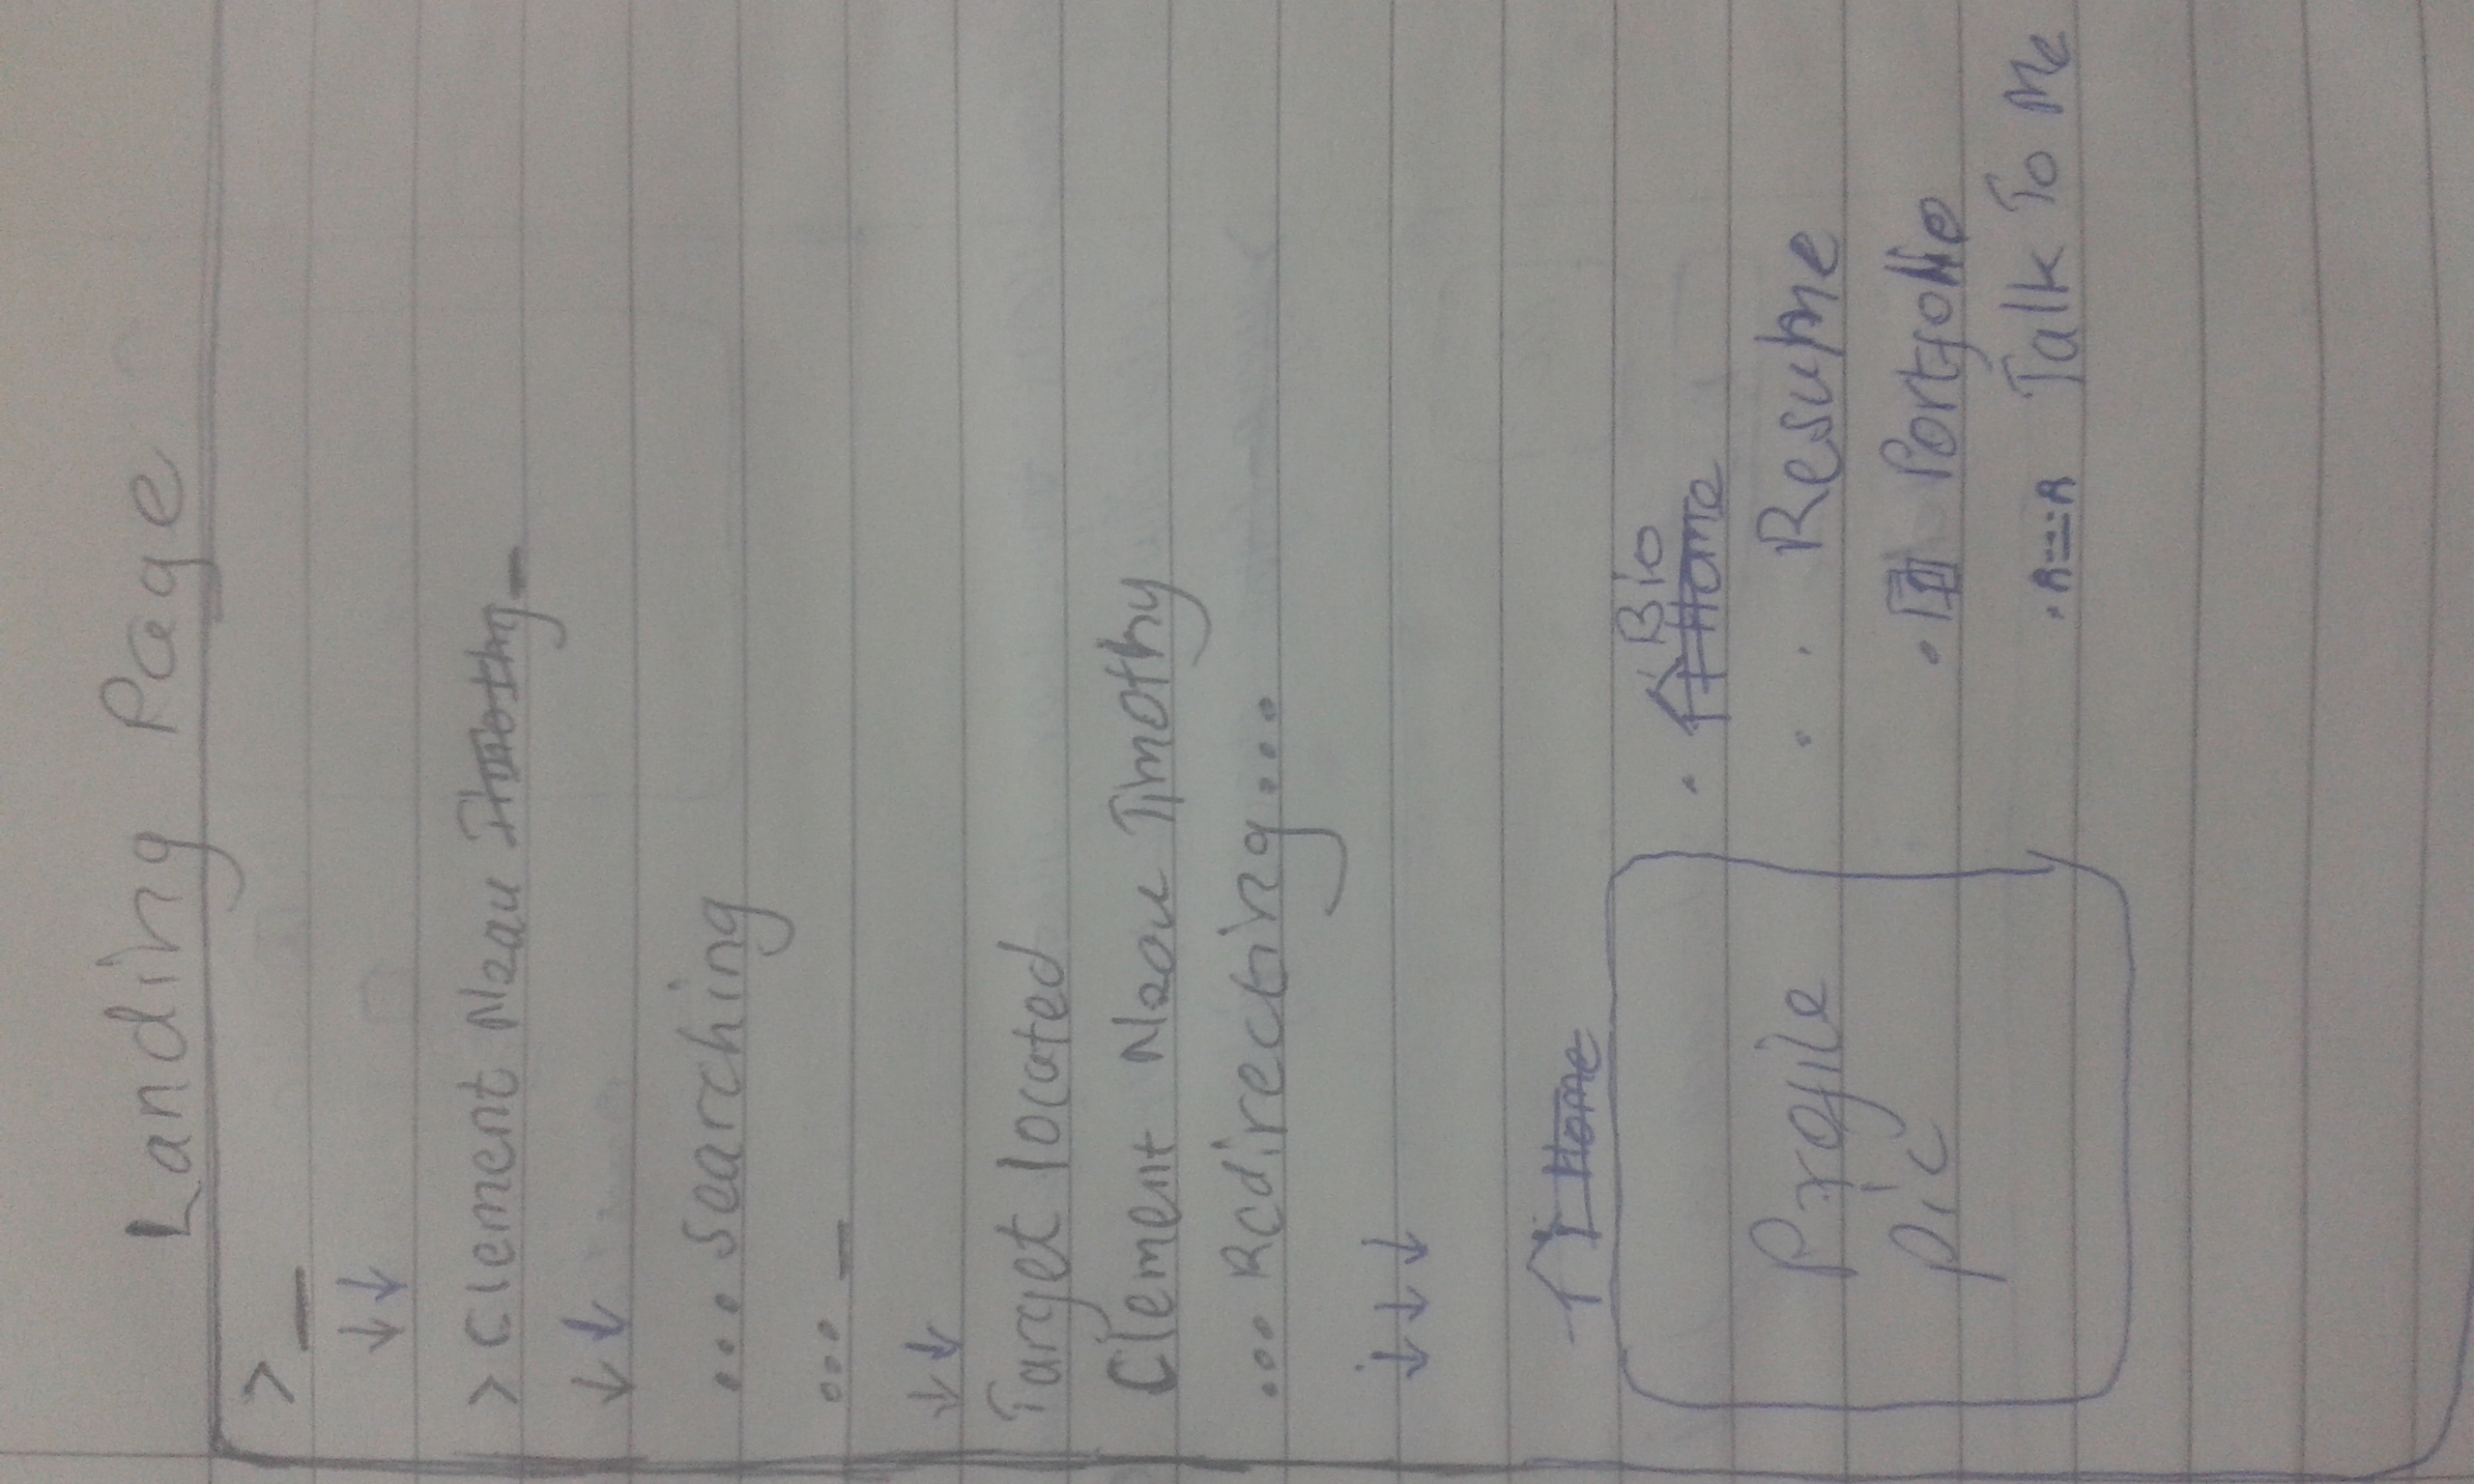 Landing Page
>_
↓↓
> Clement Nzau Timothy_
↓↓
... searching
... _
↓↓
Target located
Clement Nzau Timothy
... Redirecting...
↓↓↓
Home
Bio
Home
Profile
pic
Resume
Portfolio
Talk To Me